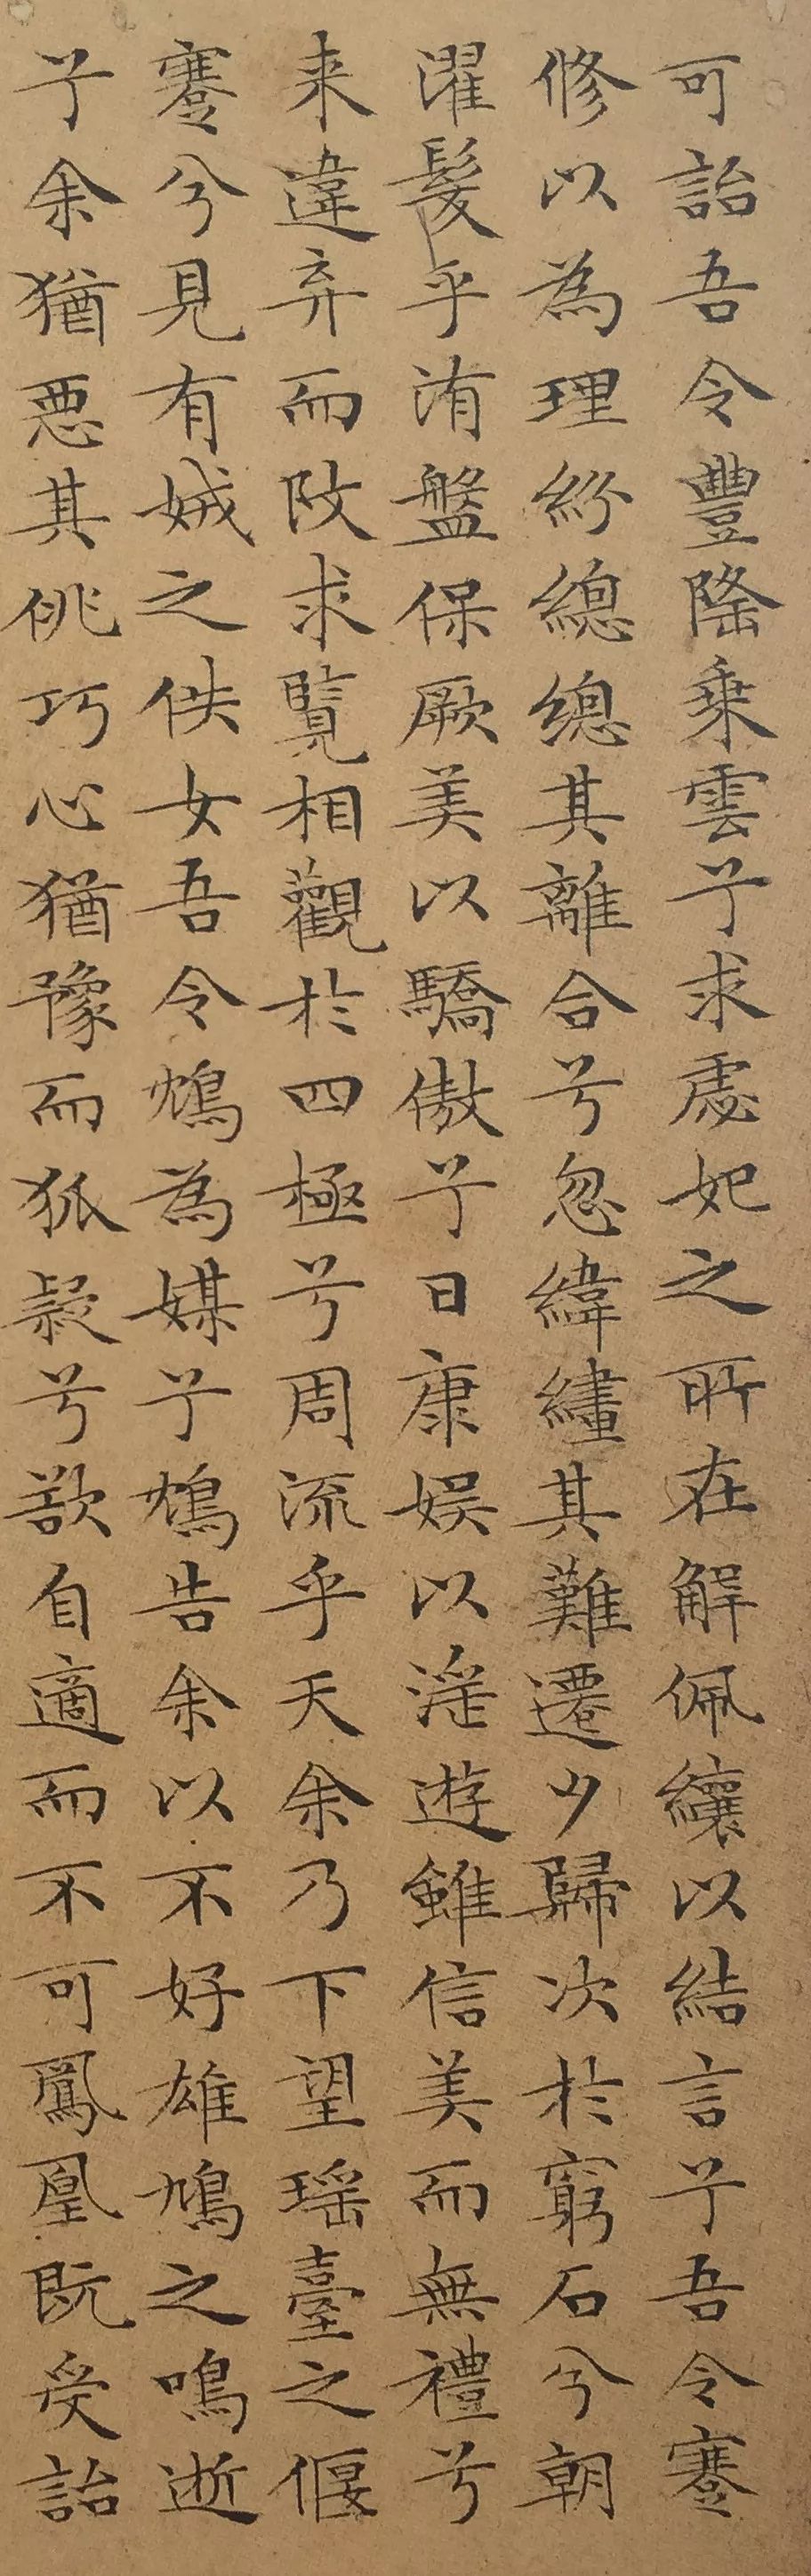 可詒吾令豐隆乗雲兮求虙妃之所在解佩纕以結言兮吾令蹇
修以為理紛緫緫其離合兮忽緯繣其難遷夕歸次於窮石兮朝
濯髮乎洧盤保厥美以驕傲兮日康娯以淫遊雖信美而無禮兮
来違弃而改求覽相觀於四極兮周流乎天余乃下望瑶臺之偃
蹇兮見有娀之佚女吾令鴆為媒兮鴆告余以不好雄鳩之鳴逝
兮余猶悪其佻巧心猶豫而狐疑兮欲自適而不可鳳凰既受詒